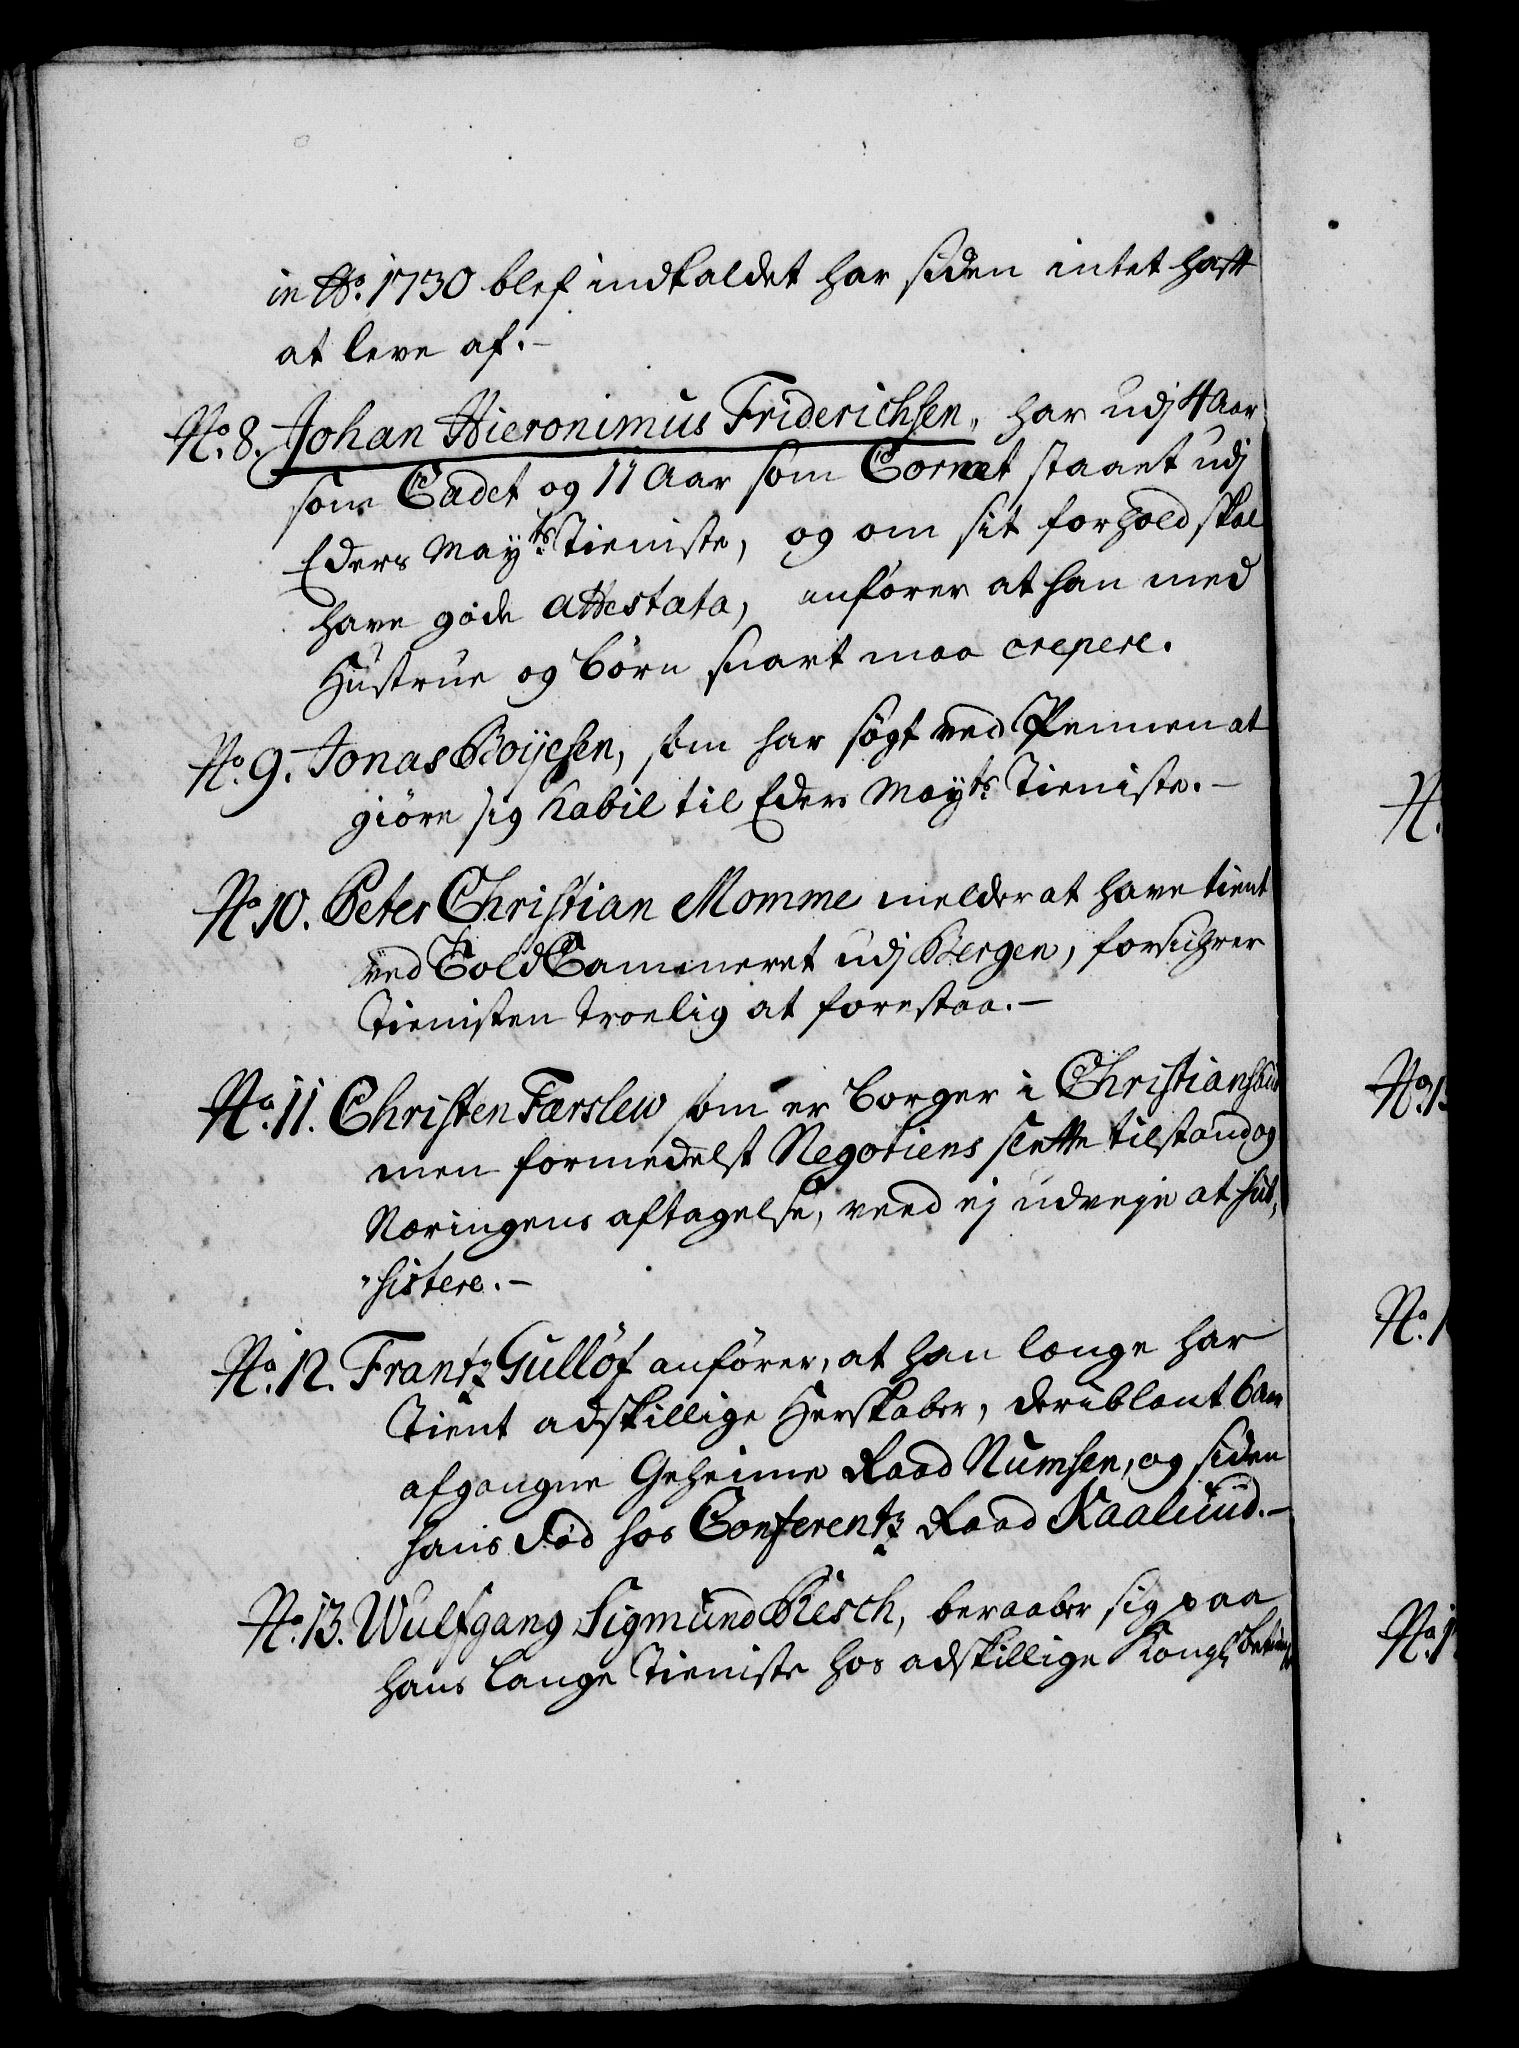 in Ao. 1730 blef indkaldet har siden intet haft
at leve af.-
No. 8. Johan Hieronimus Friderichsen, har udj 4 Aar
som Cadet og 11 Aar som Cornet staaet udj
Eders Mayts. Tieniste, og om sit forhold skal
have gode attestata, anfører at han med
Hustrue og børn snart maa crepere.
No. 9. Jonas Boijesen, som har søgt ved Pennen at
giøre sig habil til Eders Mayts. Tieniste.-
No. 10. Peter Christian Momme melder at have tient
ved Told Cammeret udj Bergen, forsichrer
Tienisten troelig at forestaa.-
No. 11. Christen Færslew som er borger i Christiansand
men formedelst Negotiens slette tilstand og
Næringens aftagelse, veed ej udveje at sub-
sistere.-
No. 12. Frantz Gulløf anfører, at han længe har
Tient adskillige Herskaber, deriblant
afgangne Geheime Raad Numsen, og siden
hans død hos Conferentz Raad Kaalund.-
No. 13. Wulfgang Sigmund Riesch, beraaber sig paa
hans lange Tieniste hos adskillige Kongl.
N.
No. 1
No. 1
No. 1